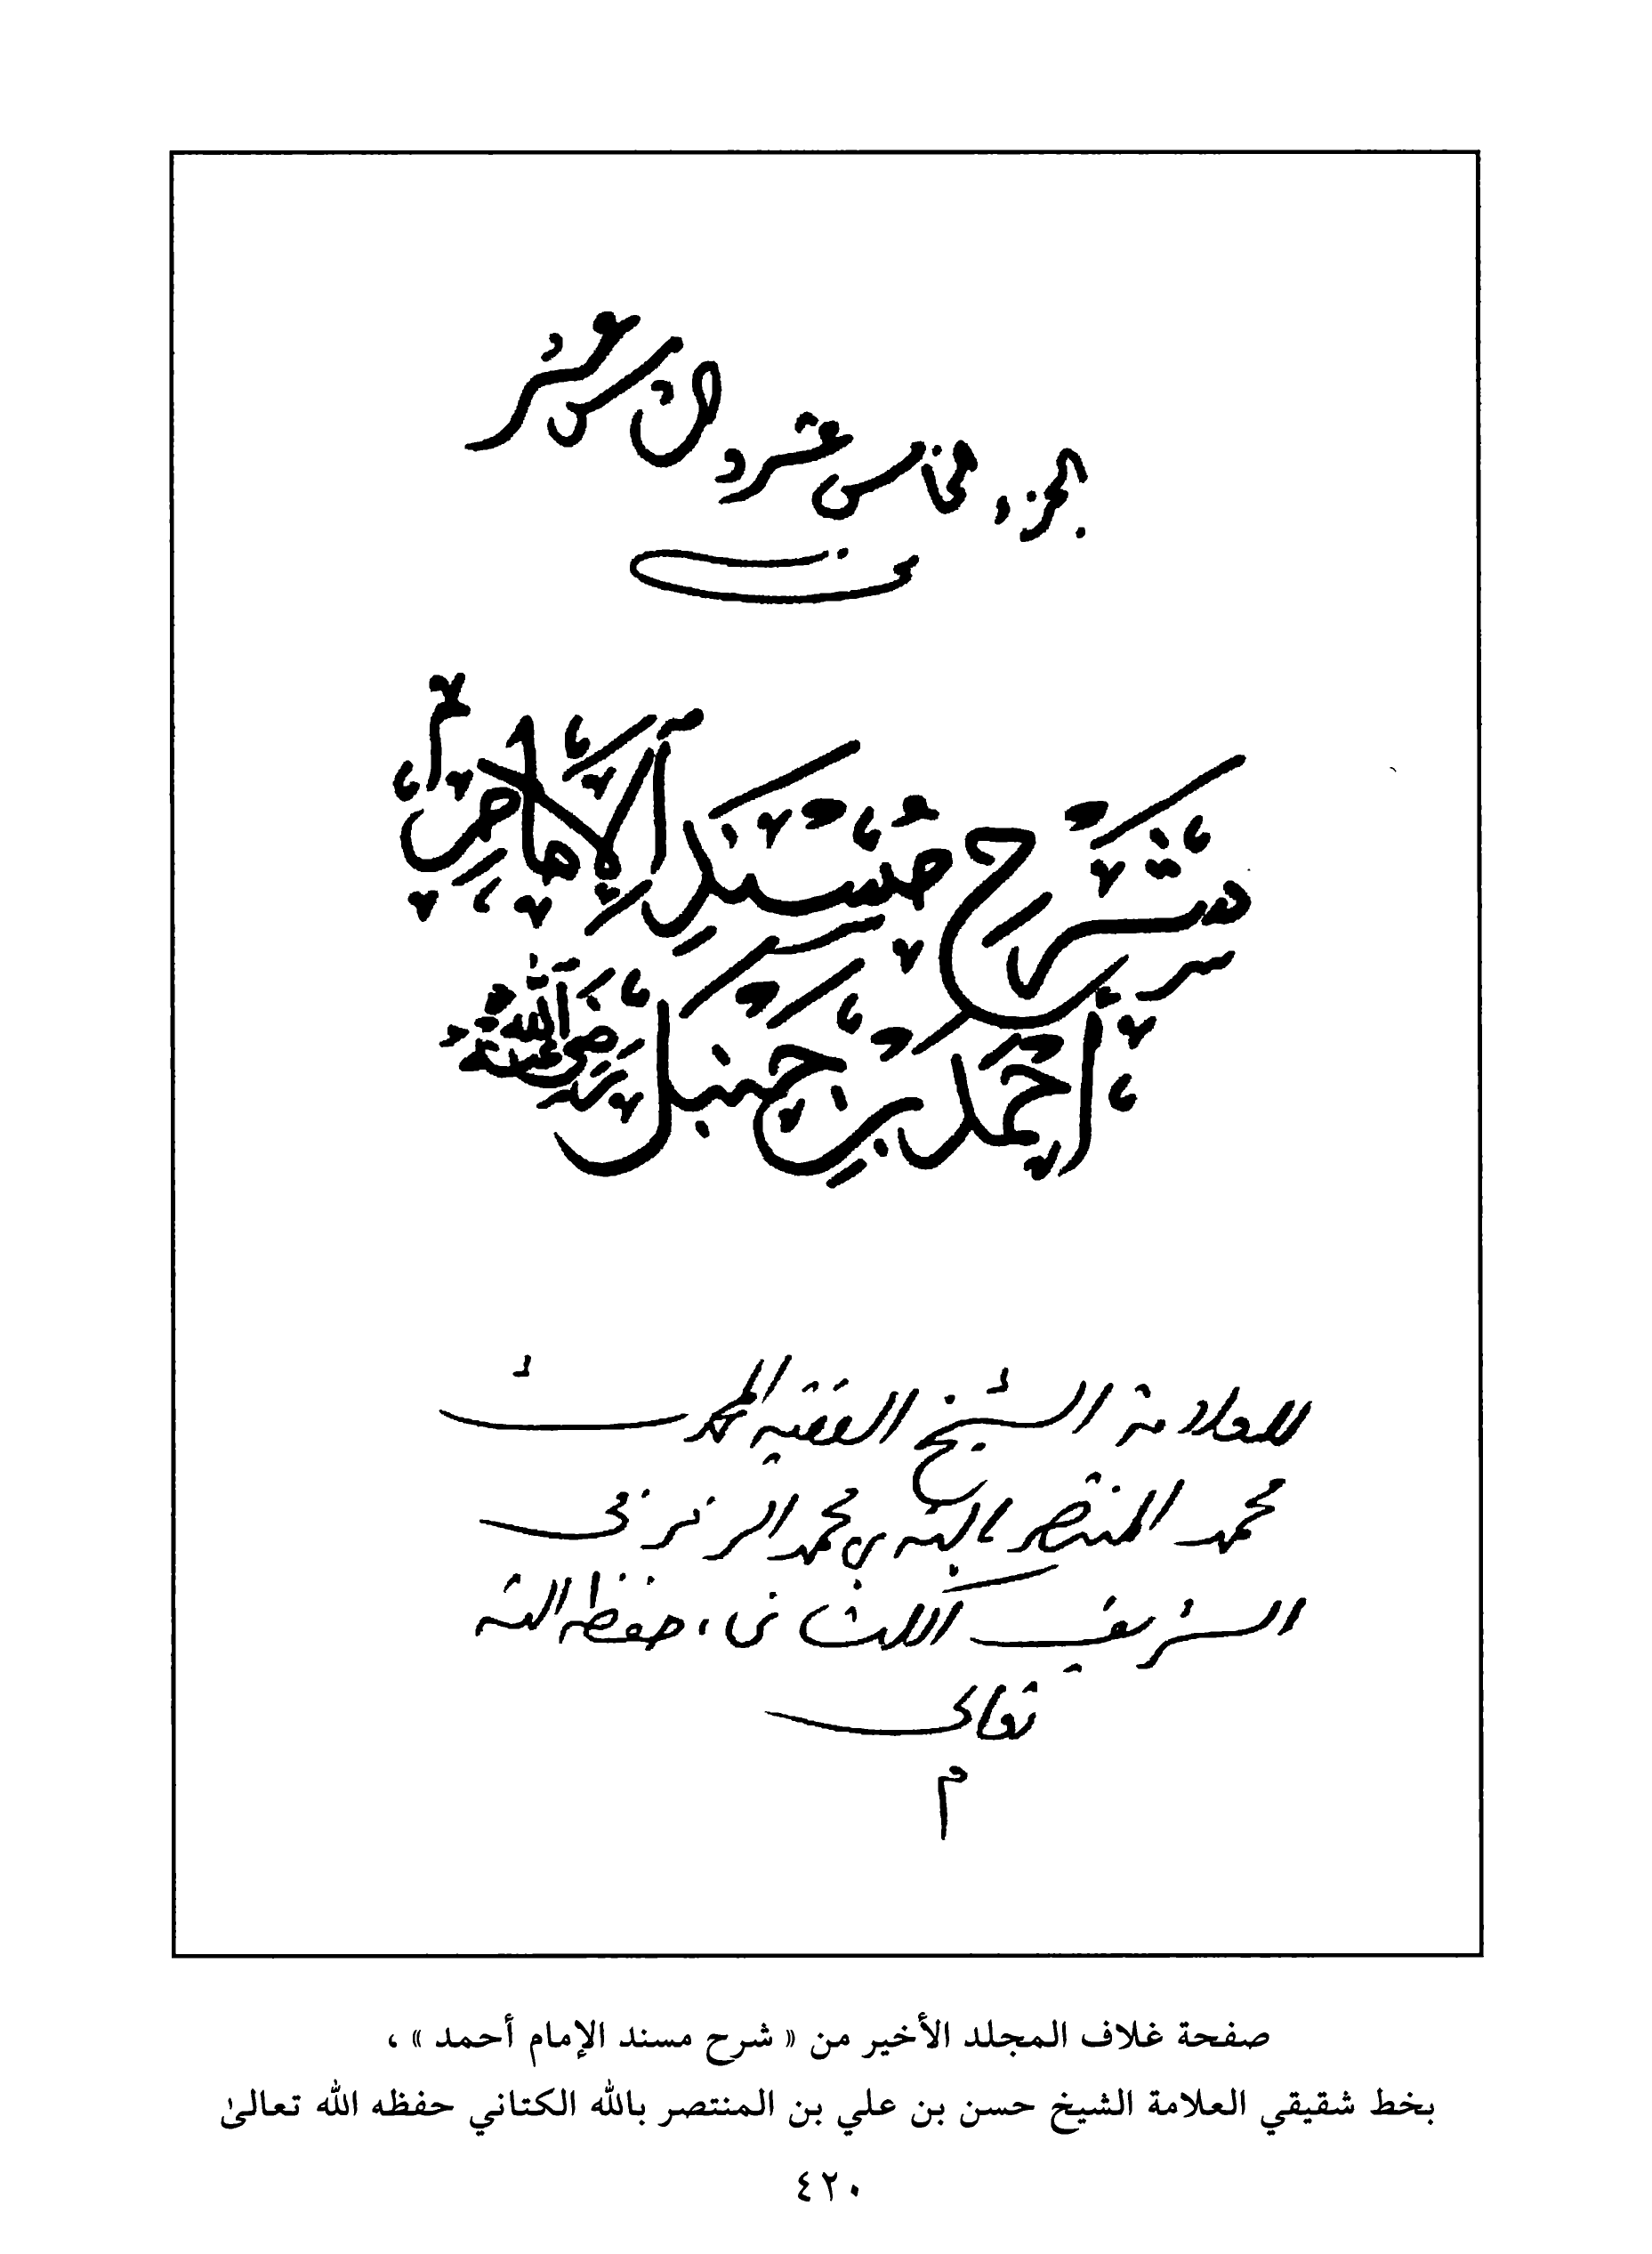 الجزء الخامس عشر والسادس عشر
من
شرح مسند الإمام
أحمد بن حنبل رضي الله عنه
للعلامة الشيخ الفقيه المحدث
محمد المنتصر بالله بن محمد الزمزمي
الشريف الكتاني، حفظه الله
تعالى
م
صفحة غلاف المجلد الأخير من « شرح مسند الإمام أحمد » ،
بخط شقيقي العلامة الشيخ حسن بن علي بن المنتصر بالله الكتاني حفظه الله تعالىٰ
٤٢٠